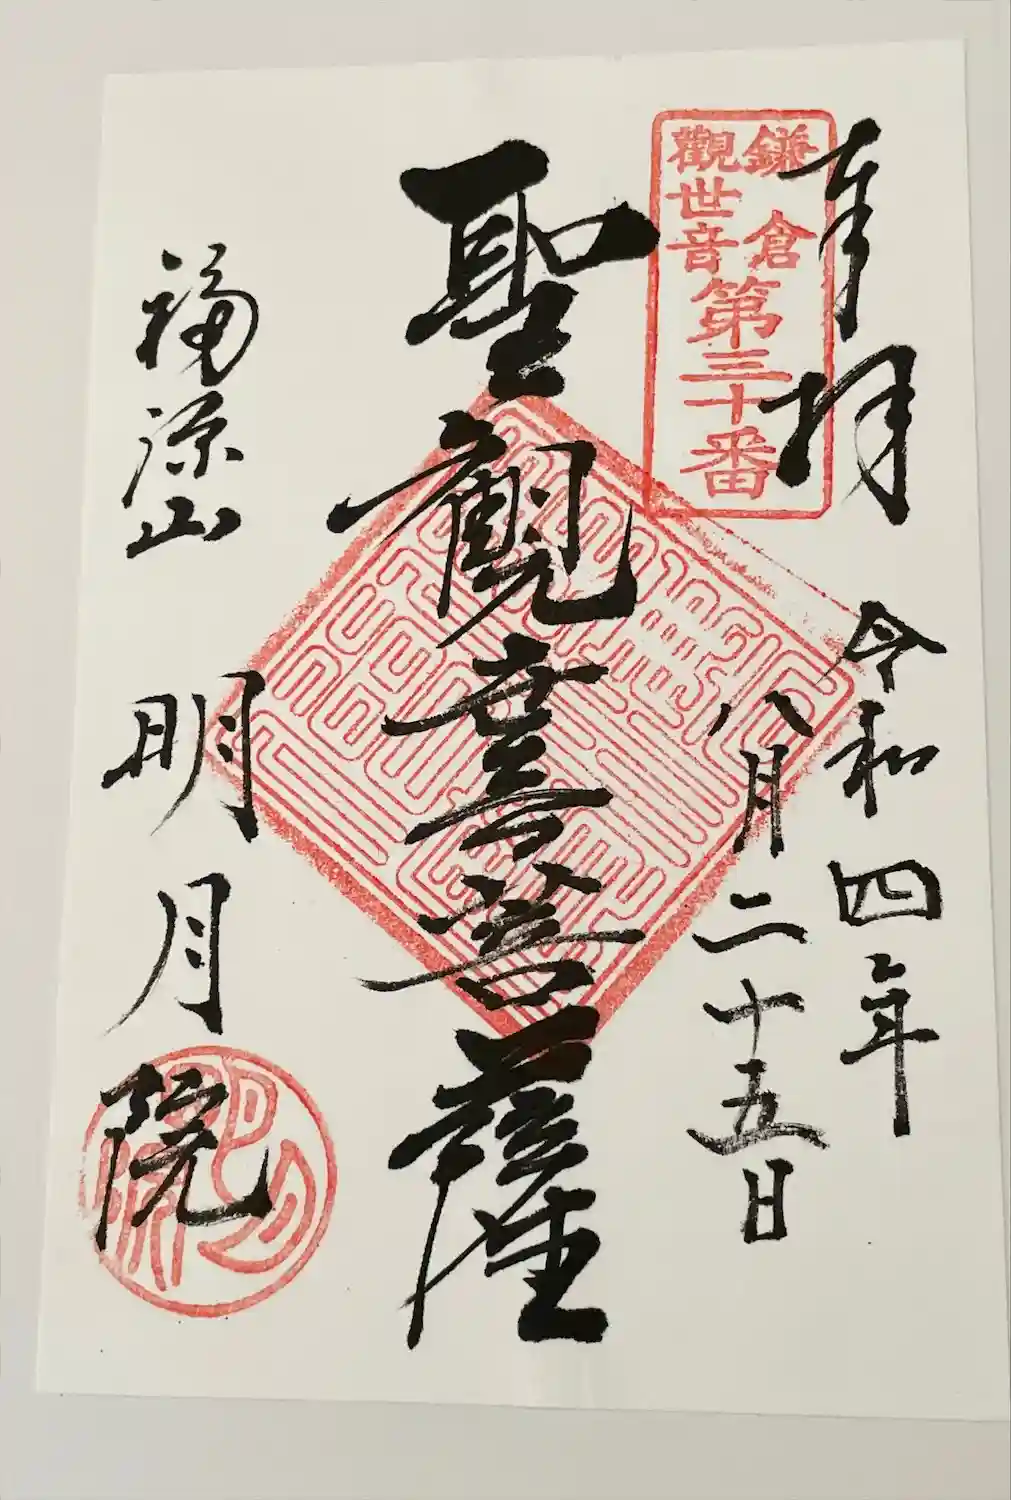 奉拝
鎌倉
觀世音
第三十番
令和四年
八月二十五日
聖觀世音菩薩
福源山
明月院